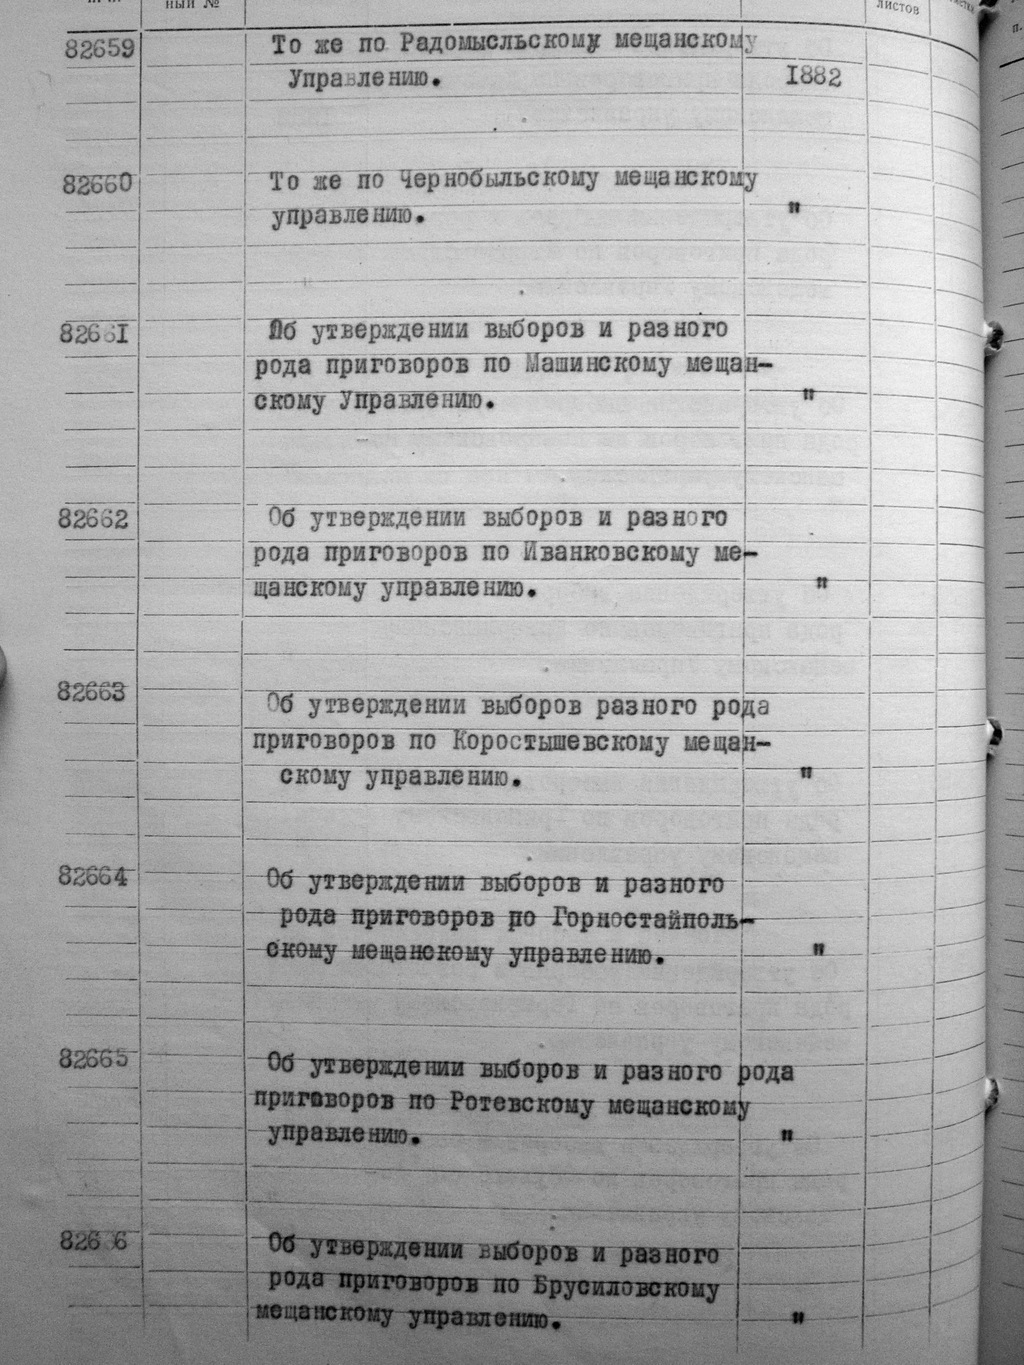 ный №
листов
82659 То же по Радомысльскому мещанскому
Управлению. 1882
82660 То же по Чернобыльскому мещанскому
управлению. "
82661 Об утверждении выборов и разного
рода приговоров по Машинскому мещан-
скому Управлению. "
82662 Об утверждении выборов и разного
рода приговоров по Иванковскому ме-
щанскому управлению. "
82663 Об утверждении выборов разного рода
приговоров по Коростышевскому мещан-
скому управлению. "
82664 Об утверждении выборов и разного
рода приговоров по Горностайполь-
скому мещанскому управлению. "
82665 Об утверждении выборов и разного рода
приговоров по Ротевскому мещанскому
управлению. "
82666 Об утверждении выборов и разного
рода приговоров по Брусиловскому
мещанскому управлению. "